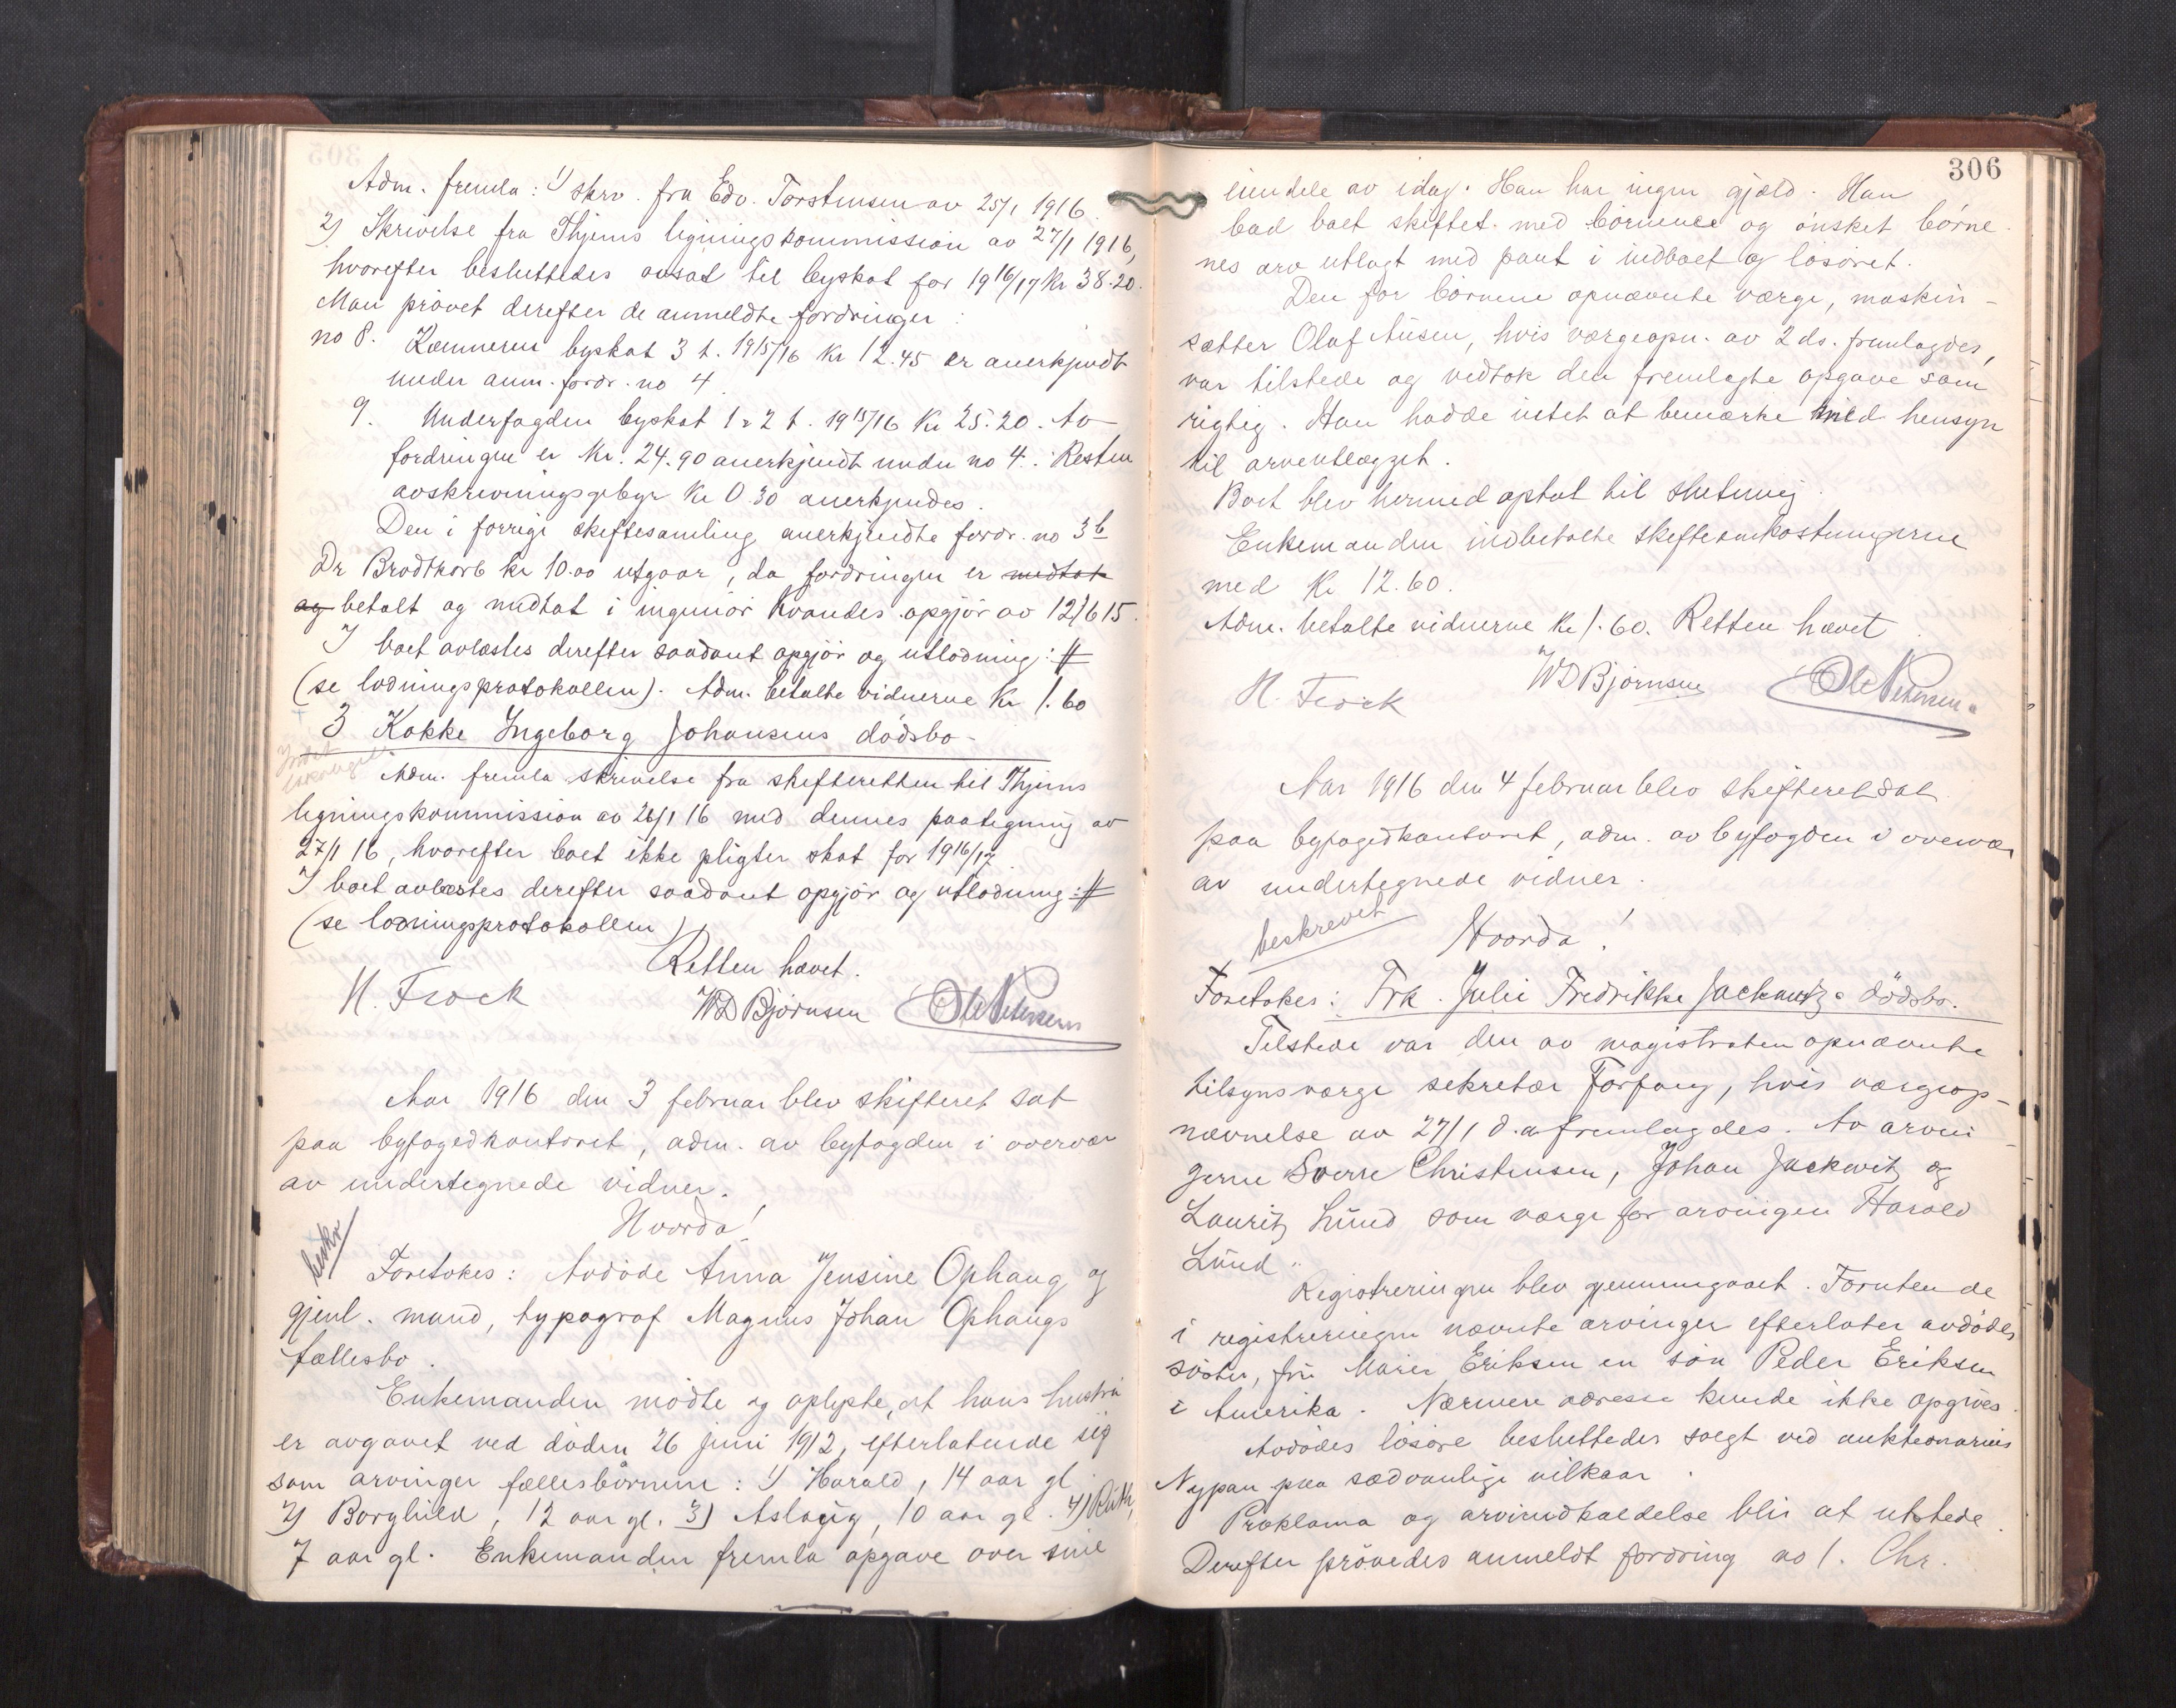 Adm. fremla: 1) skrv. fra Edv. Torstensen av 25/1 1916.
2) Skrivelse fra Thjems ligningskommission av 27/1 1916,
hvorefter besluttedes avsat til byskat for 1916/17 Kr 38.20.
Man prøvet derefter de anmeldte fordringer:
no 8. Kæmneren byskat 3 t. 1915/16 Kr 12.45 er anerkjendt
under anm. fordr. no 4
9. Underfogden byskat 1 & 2 t. 1915/16 Kr 25.20. Av
fordringen er Kr. 24.90 anerkjendt under no 4. Resten
avskrivningsgebyr Kr 0.30 anerkjendes.
Den i forrige skiftesamling anerkjendte fordr. no 3b
Dr Brodtkorb kr 10.00 utgaar, da fordringen er medtat
og betalt og medtat i ingeniør Kvandes opgjør av 12/6 15.
I boet avlæstes derefter saadant opgjør og utlodning: #
(se lodningsprotokollen). Adm. betalte vidnerne Kr 1.60
3 Kokke Ingeborg Johansens dödsbo.
Adm. fremla skrivelse fra skifteretten til Thjems
ligningskommission av 26/1 16 med dennes paategning av
27/1 16, hvorefter boet ikke pligter skat for 1916/17.
I boet avlæstes derefter saadant opgjør og utlodning: #
(se lodningsprotokollen)
Retten hævet.
H. Frock WD Bjørnsen Ole Petersen
Aar 1916 den 3 februar blev skifteret sat
paa byfogedkontoret, adm. av byfogden i overvær
av undertegnede vidner.
Hvorda!
beskr
Foretokes: Avdøde Anna Jensine Ophaug og
gjenl. mand, typograf Magnus Johan Ophaugs
fællesbo.
Enkemanden mødte og oplyste, at hans hustru
er avgaaet ved døden 26 juni 1912, efterlatende sig
som arvinger fællesbörnene: 1) Harald, 14 aar gl.
2) Borghild, 12 aar gl. 3) Aslaug, 10 aar gl. 4) Ruth,
7 aar gl. Enkemanden fremla opgave over sine
306
eiendele av idag. Han har ingen gjæld. Han
bad boet skiftet med börnene og ønsket börne-
nes arv utlagt med pant i indboet og løsøret.
Den for börnene opnævnte værge, maskin-
sætter Olaf Aüsen, hvis værgeopn. av 2 ds. fremlagdes,
var tilstede og vedtok den fremlagte opgave som
rigtig. Han hadde intet at bemærke med hensyn
til arveutlægget.
Boet blev hermed optat til slutning.
Enkemanden indbetalte skifteomkostningerne
med Kr 12.60.
Adm. betalte vidnerne Kr 1.60. Retten hævet
H. Frock WD Bjørnsen Ole Petersen
Aar 1916 den 4 februar blev skifteret sat
paa byfogedkontoret, adm. av byfogden i overvær
av undertegnede vidner.
beskrevet
Hvorda!
Foretokes: Frk. Julie Fredrikke Jackwitz's dödsbo.
Tilstede var den av magistraten opnævnte
tilsynsværge sekretær Forfang, hvis værgeop-
nævnelse av 27/1 d.a. fremlagdes. Av arvin-
gerne Sverre Christensen, Johan Jackwitz og
Lauritz Lund som værge for arvingen Harald
Lund.
Registreringen blev gjennemgaaet. Foruten de
i registreringen nævnte arvinger efterlater avdødes
söster, fru Maren Eriksen en sön Peder Eriksen
i Amerika. Nærmere adresse kunde ikke opgives.
Avdødes løsøre besluttedes solgt ved auktionarius
Nypan paa sædvanlige vilkaar.
Proklama og arvindkaldelse blir at utstede.
Derefter prövedes anmeldt fordring no 1. Chr.